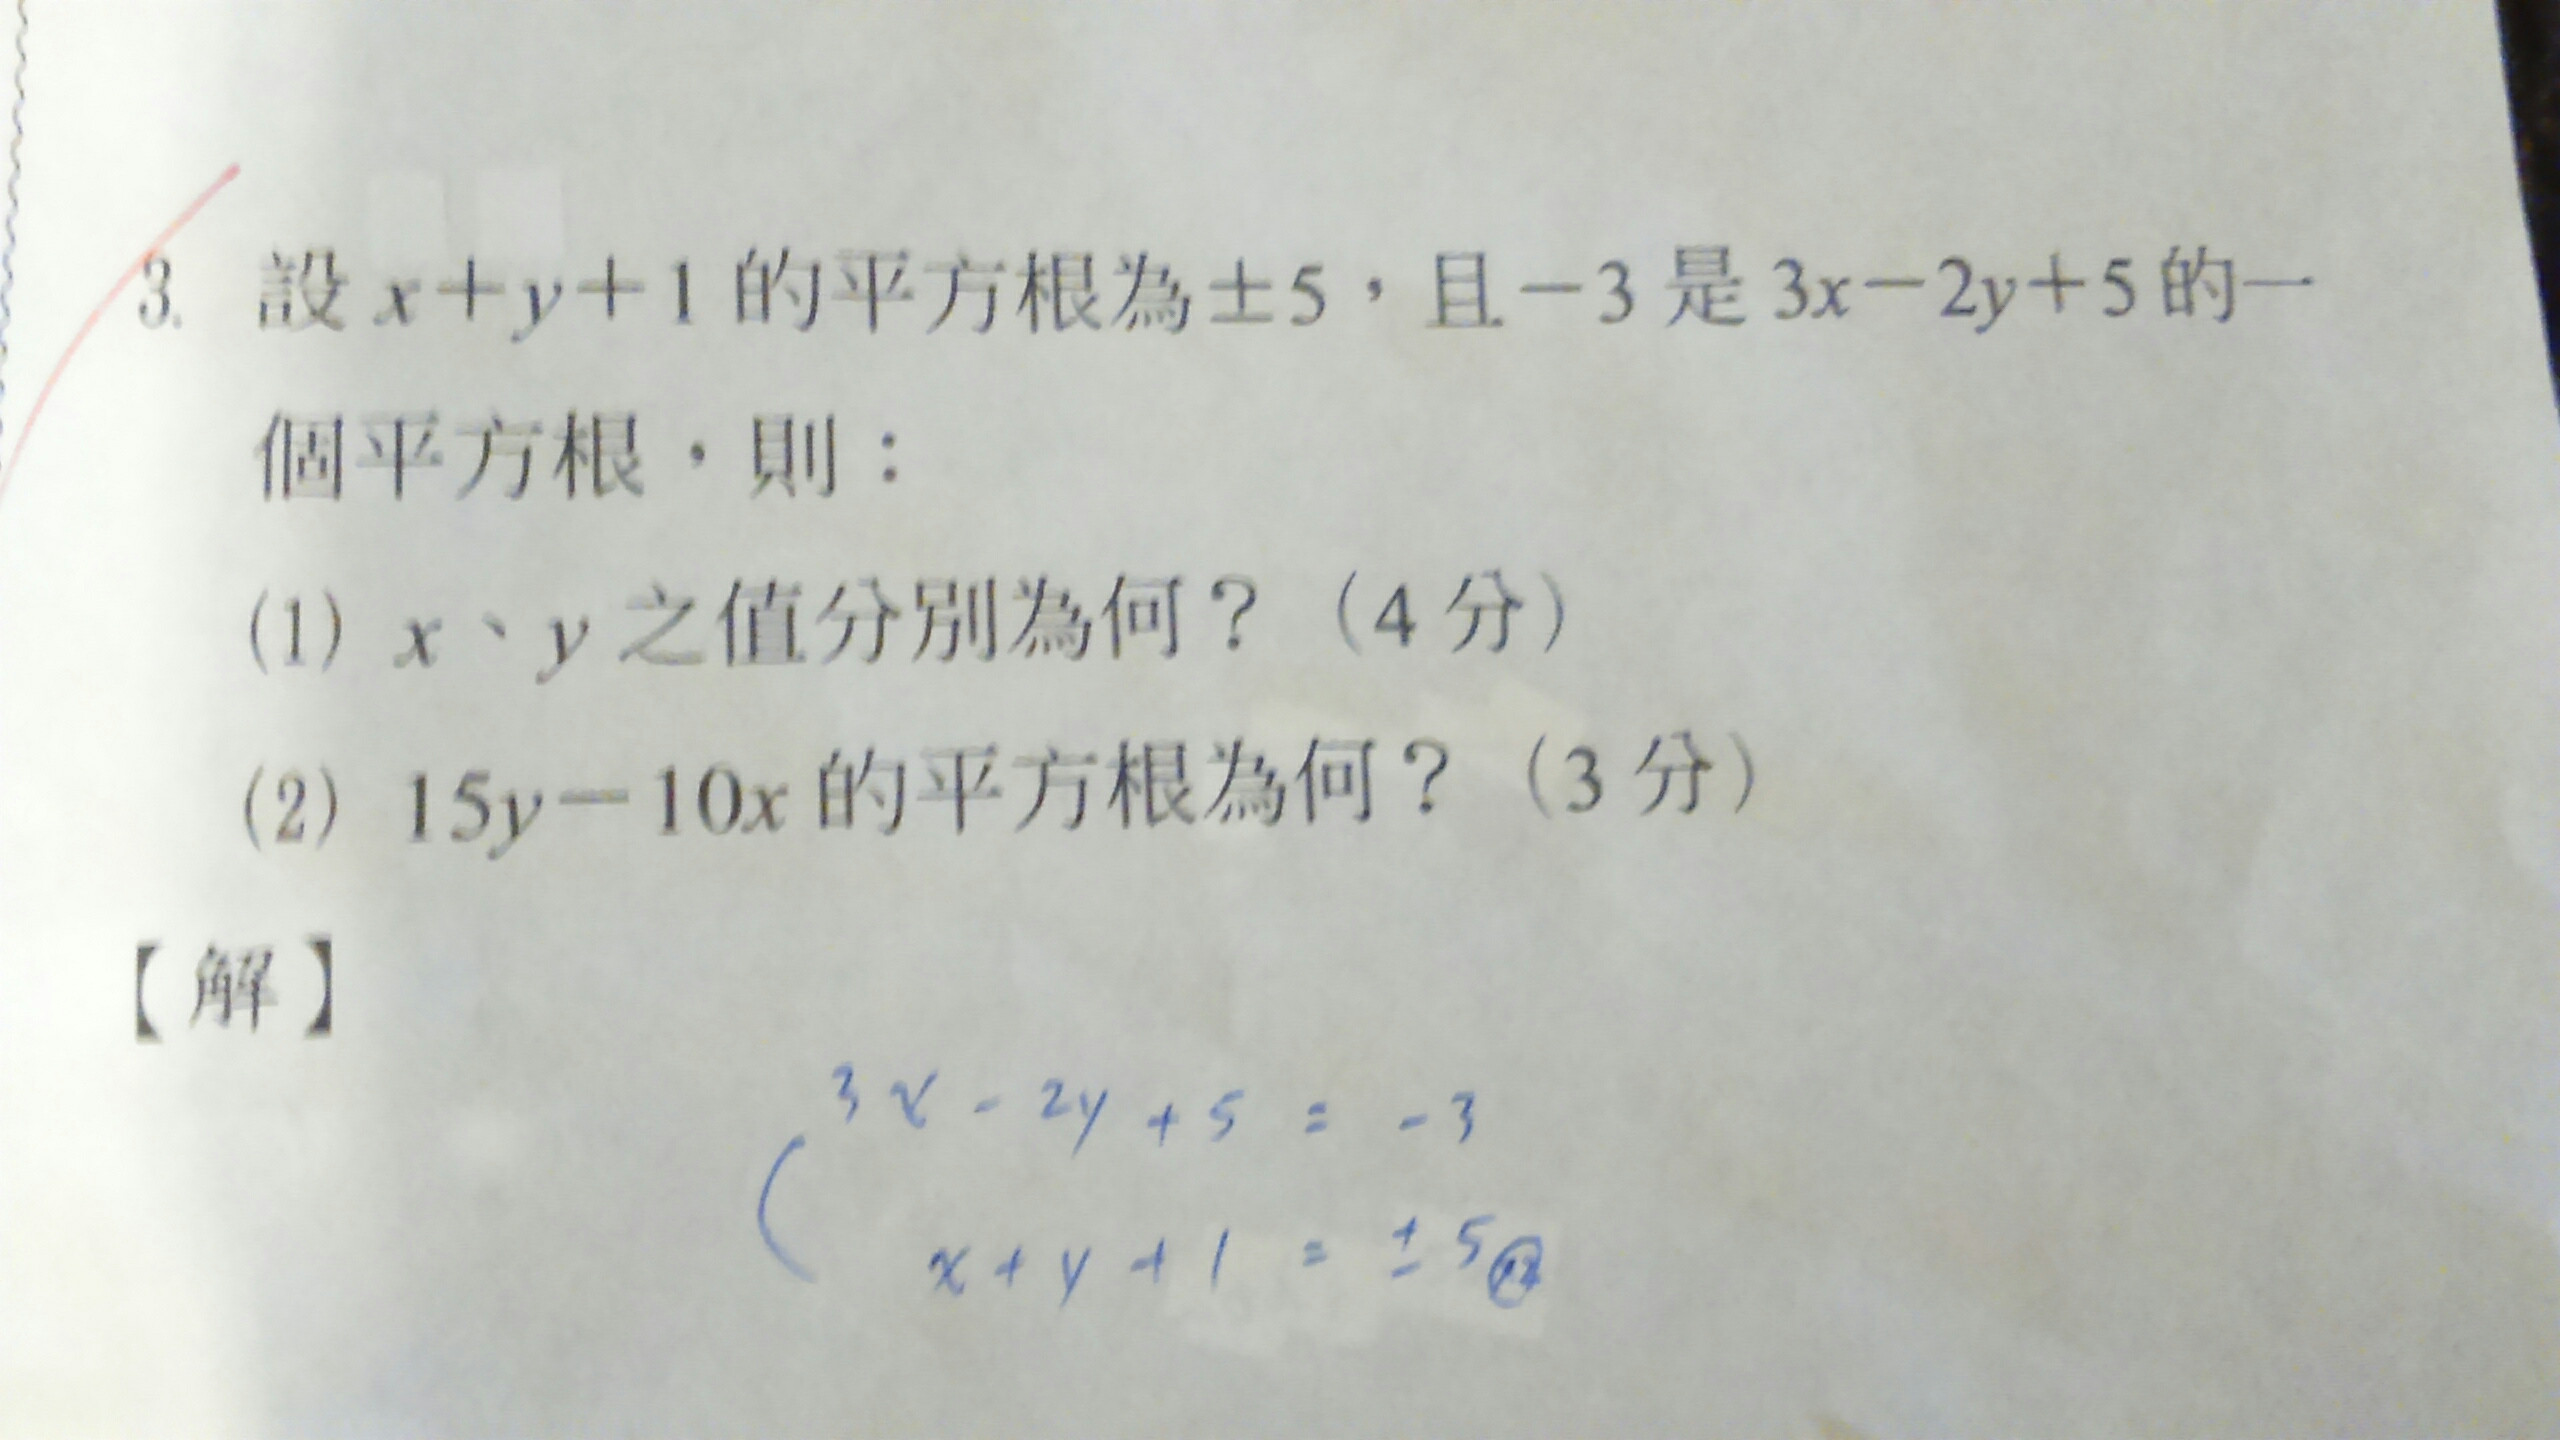 3. 設 x+y+1 的平方根為±5，且-3 是 3x-2y+5 的一
個平方根，則：
(1) x、y 之值分別為何？（4 分）
(2) 15y-10x 的平方根為何？（3 分）
【解】
3x - 2y + 5 = -3
x + y + 1 = ± 5